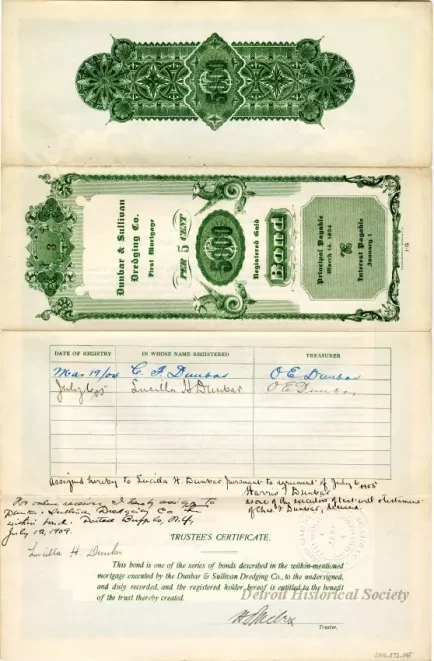 5000
3
Dunbar & Sullivan
Dredging Co.
First Mortgage
5 PER CENT
5000
Registered Gold
Bond
Principal Payable
Interest Payable
January 1
DATE OF REGISTRY
IN WHOSE NAME REGISTERED
TREASURER
Mar 19/04 C. F. Dunbar O E Dunbar
July 6/05 Lucilla H Dunbar O E Dunbar
Assigned hereby to Lucilla H. Dunbar pursuant to agreement of July 6 1905
Harris T Dunbar
as one of the executors of last will & testament
of Chas F Dunbar, deceased.
For value received I hereby assign to
Dunbar & Sullivan Dredging Co the
within bond. Dated Buffalo, N.Y.,
July 12, 1909.
Lucilla H Dunbar
TRUSTEE'S CERTIFICATE.
This bond is one of the series of bonds described in the within-mentioned
mortgage executed by the Dunbar & Sullivan Dredging Co., to the undersigned,
and duly recorded, and the registered holder hereof is entitled to the benefit
of the trust thereby created.
Detroit Historical Society
Trustee.